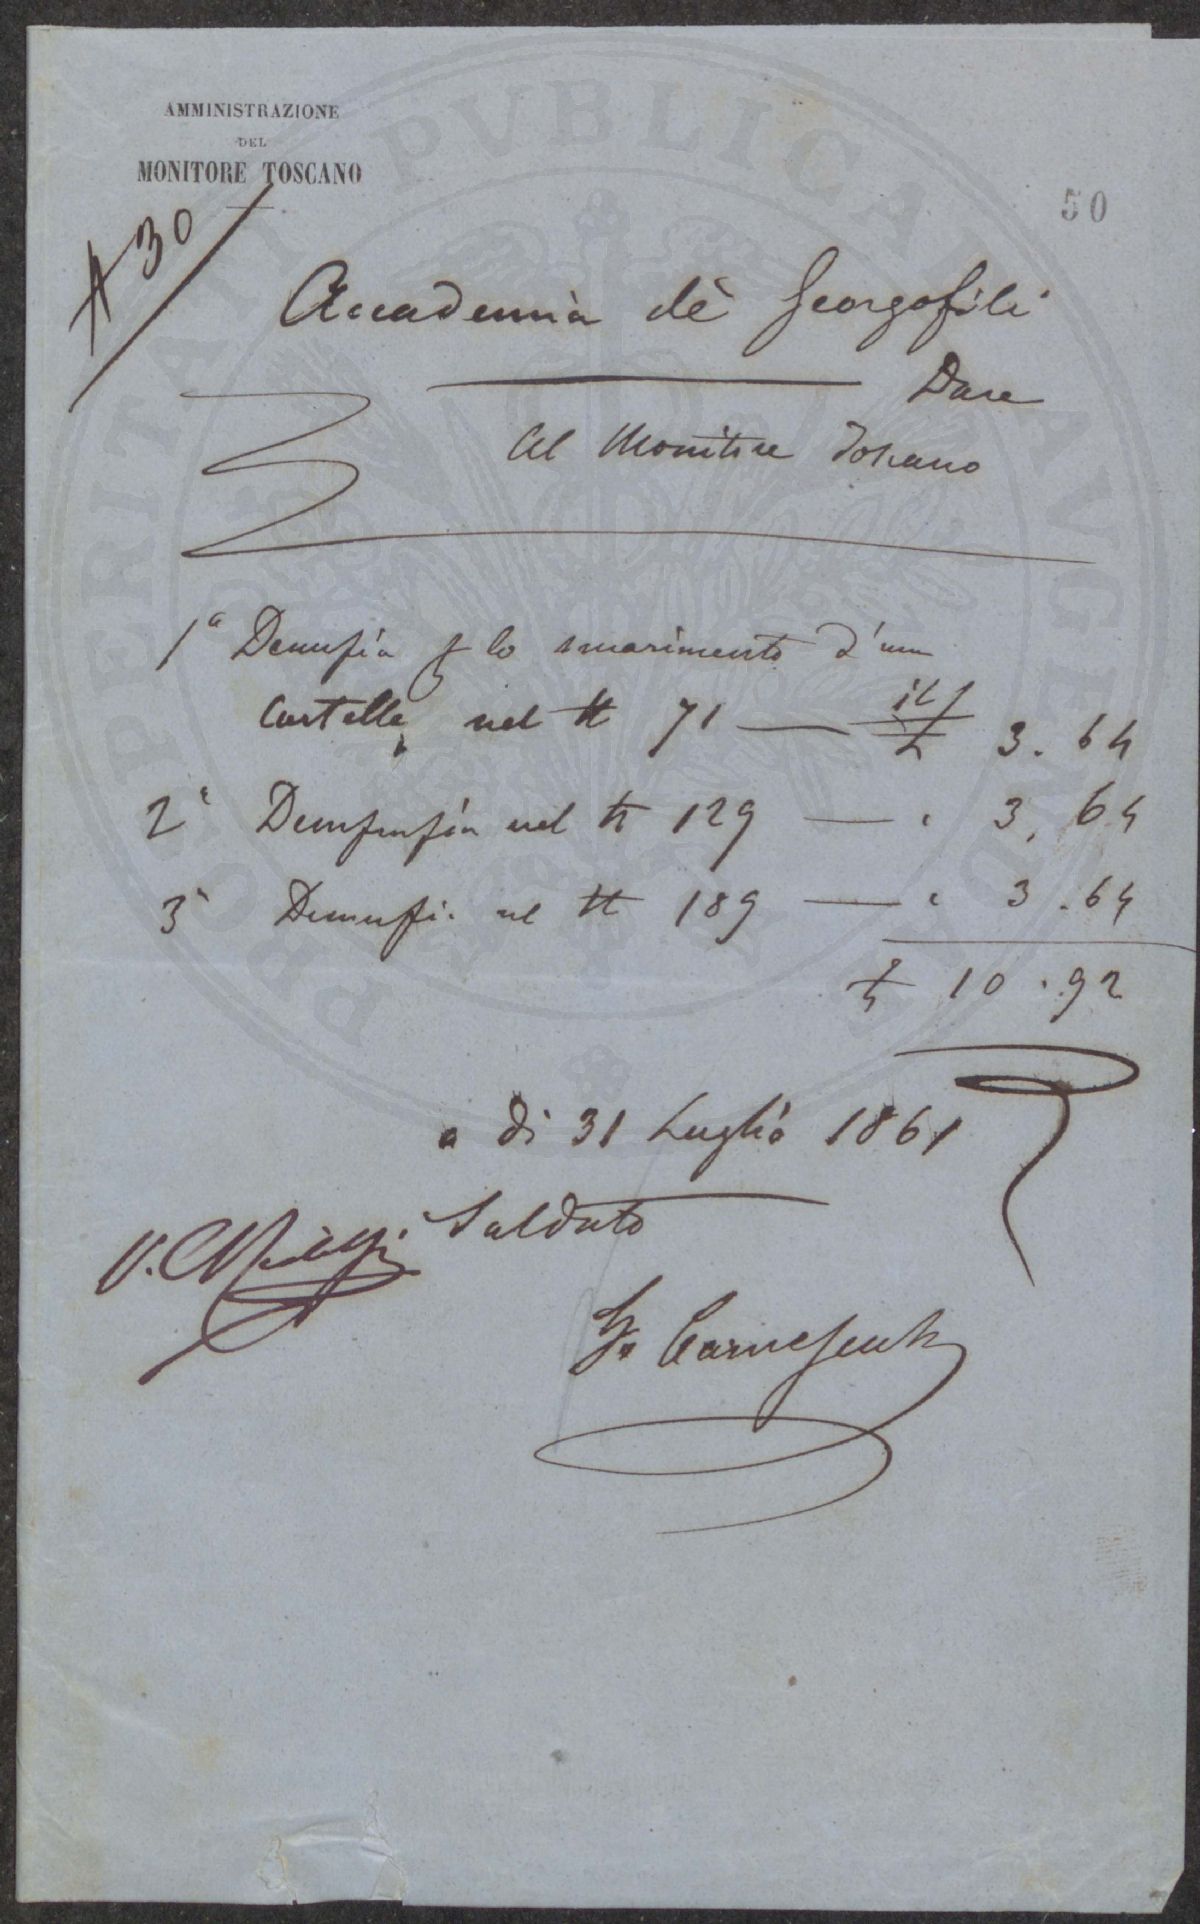 AMMINISTRAZIONE
DEL
MONITORE TOSCANO
50
30
Accademia dè Georgofili
Dare
Al Monitore Toscano
1ª Denunzia p lo smarimento d'una
Cartella nel N 71 — 3.64
2ª Denunzia nel N 129 — " 3.64
3ª Denunzia nel N 189 — " 3.64
£ 10.92
a di 31 Luglio 1861
Saldato
V.
Carnesecchi
PROSPERITATI PUBLICAE AUGENDAE